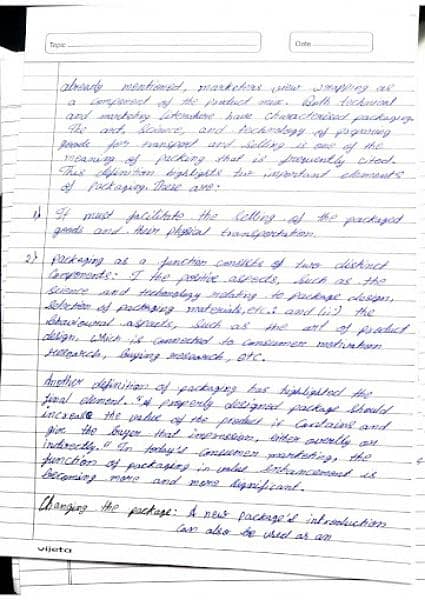 Topic
Date
already mentioned, marketers view wrapping as
a component of the product mix. Both technical
and marketing literature have characterised packaging.
The art, science, and technology of preparing
goods for transport and selling is one of the
meaning of packing that is frequently cited.
This definition highlights two important elements
of Packaging. These are:
1) It must facilitate the selling of the packaged
goods and their physical transportation.
2) packaging as a function consists of two distinct
Components: I the positive aspects, such as the
science and technology relating to package design,
selection of packaging materials, etc.: and (ii)
behavioural aspects, such as the art of product
design, which is connected to consumer motivation
research, buying research, etc.
Another definition of packaging has highlighted the
final element. "a properly designed package should
increase the value of the product it contains and
give the buyer that impression, either overtly or
indirectly." In today's consumer marketing, the
function of packaging in value enhancement is
becoming more and more significant.
Changing the package: A new package's introduction
can also be used as an
vijeta